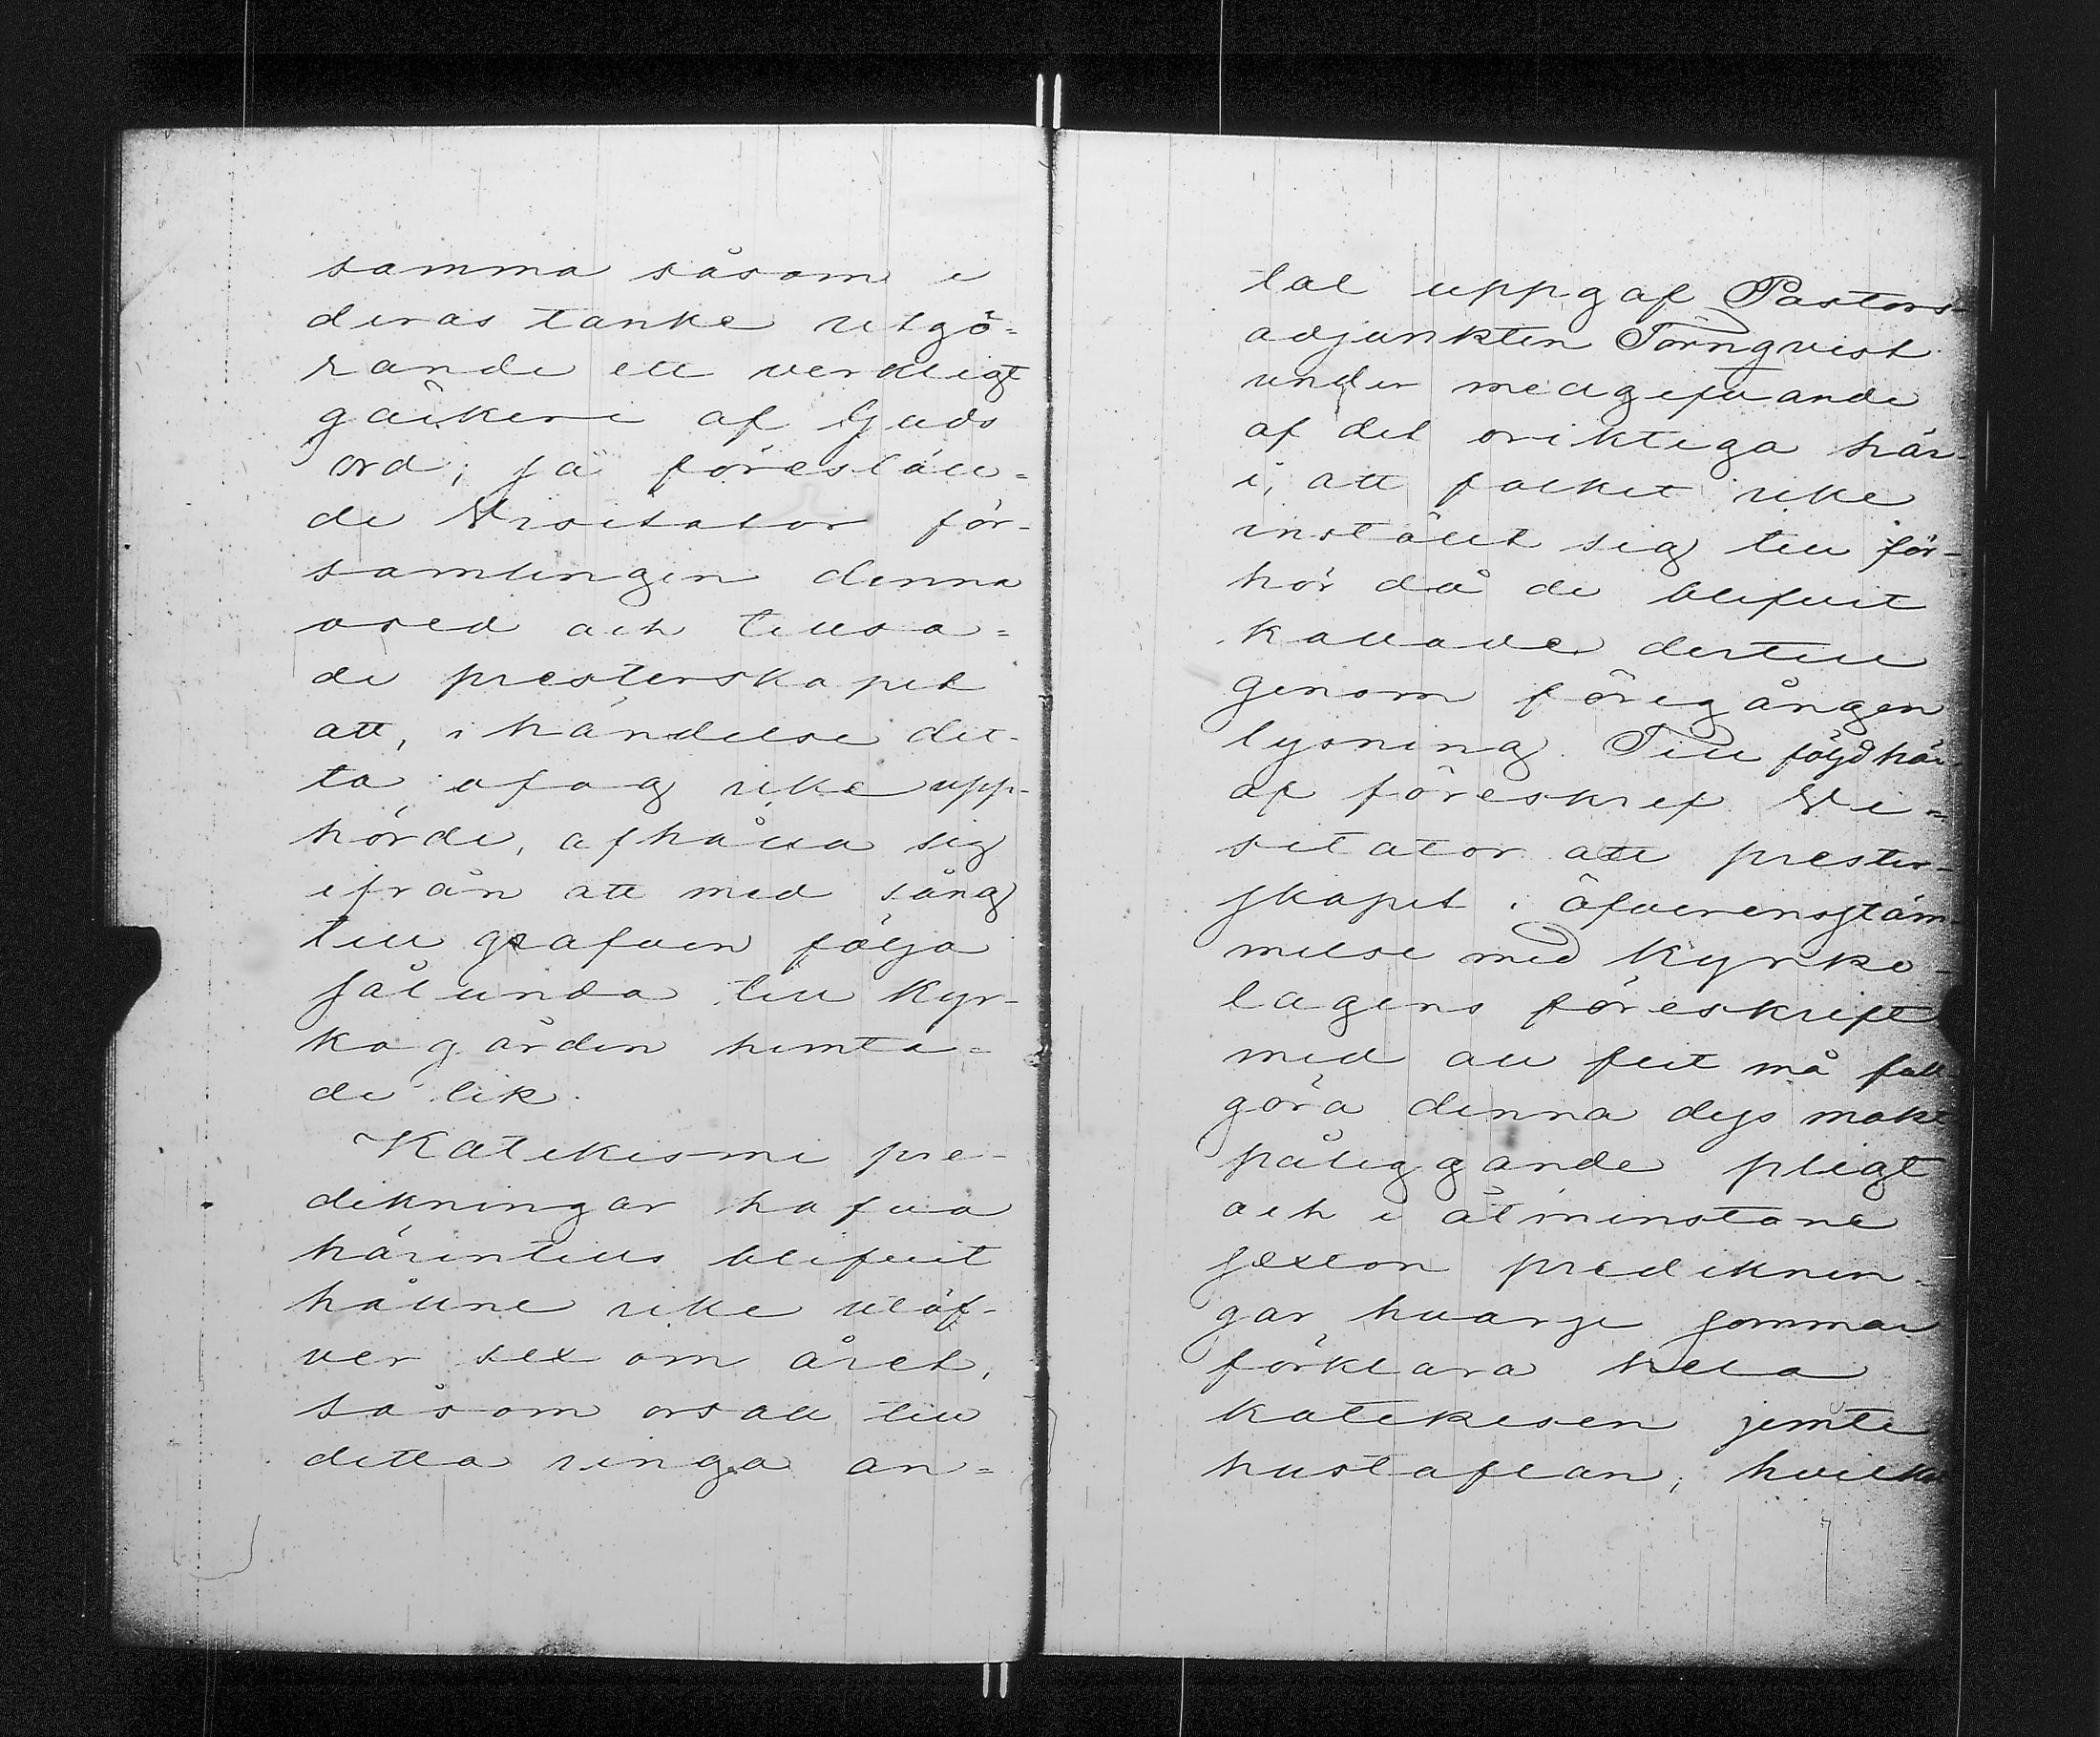 samma såsom i
deras tanke utgö=
rande ett verkligt
gäckeri af Guds
ord; så föreställ=
de Visitator för-
samlingen denna
osed och tillsa=
de presterskapet
att, i händelse det-
ta ofog icke upp-
hörde, afhålla sig
ifrån att med sång
till grafven följa
sålunda till kyr-
kogården hemta=
de lik.
Katekismi pre-
dikningar hafva
härintills blifvit
hållne icke utöf-
ver sex om året,
såsom orsak till
detta ringa an=
tal uppgaf Pastors-
adjunkten Törnqvist
under medgifvande
af det oriktiga här-
i, att folket icke
inställt sig till för-
hör då de blifvit
kallade dertill
genom föregången
lysning. Till följd här-
af föreskref Vi=
sitator att prester-
skapet i öfverensstäm-
melse med Kyrko-
lagens föreskrift
med all flit må full-
göra denna dess makt
påliggande pligt
och i åtminstone
sexton prediknin-
gar hvarje sommar
förklara hela
katekesen jemte
hustaflan, hvilka